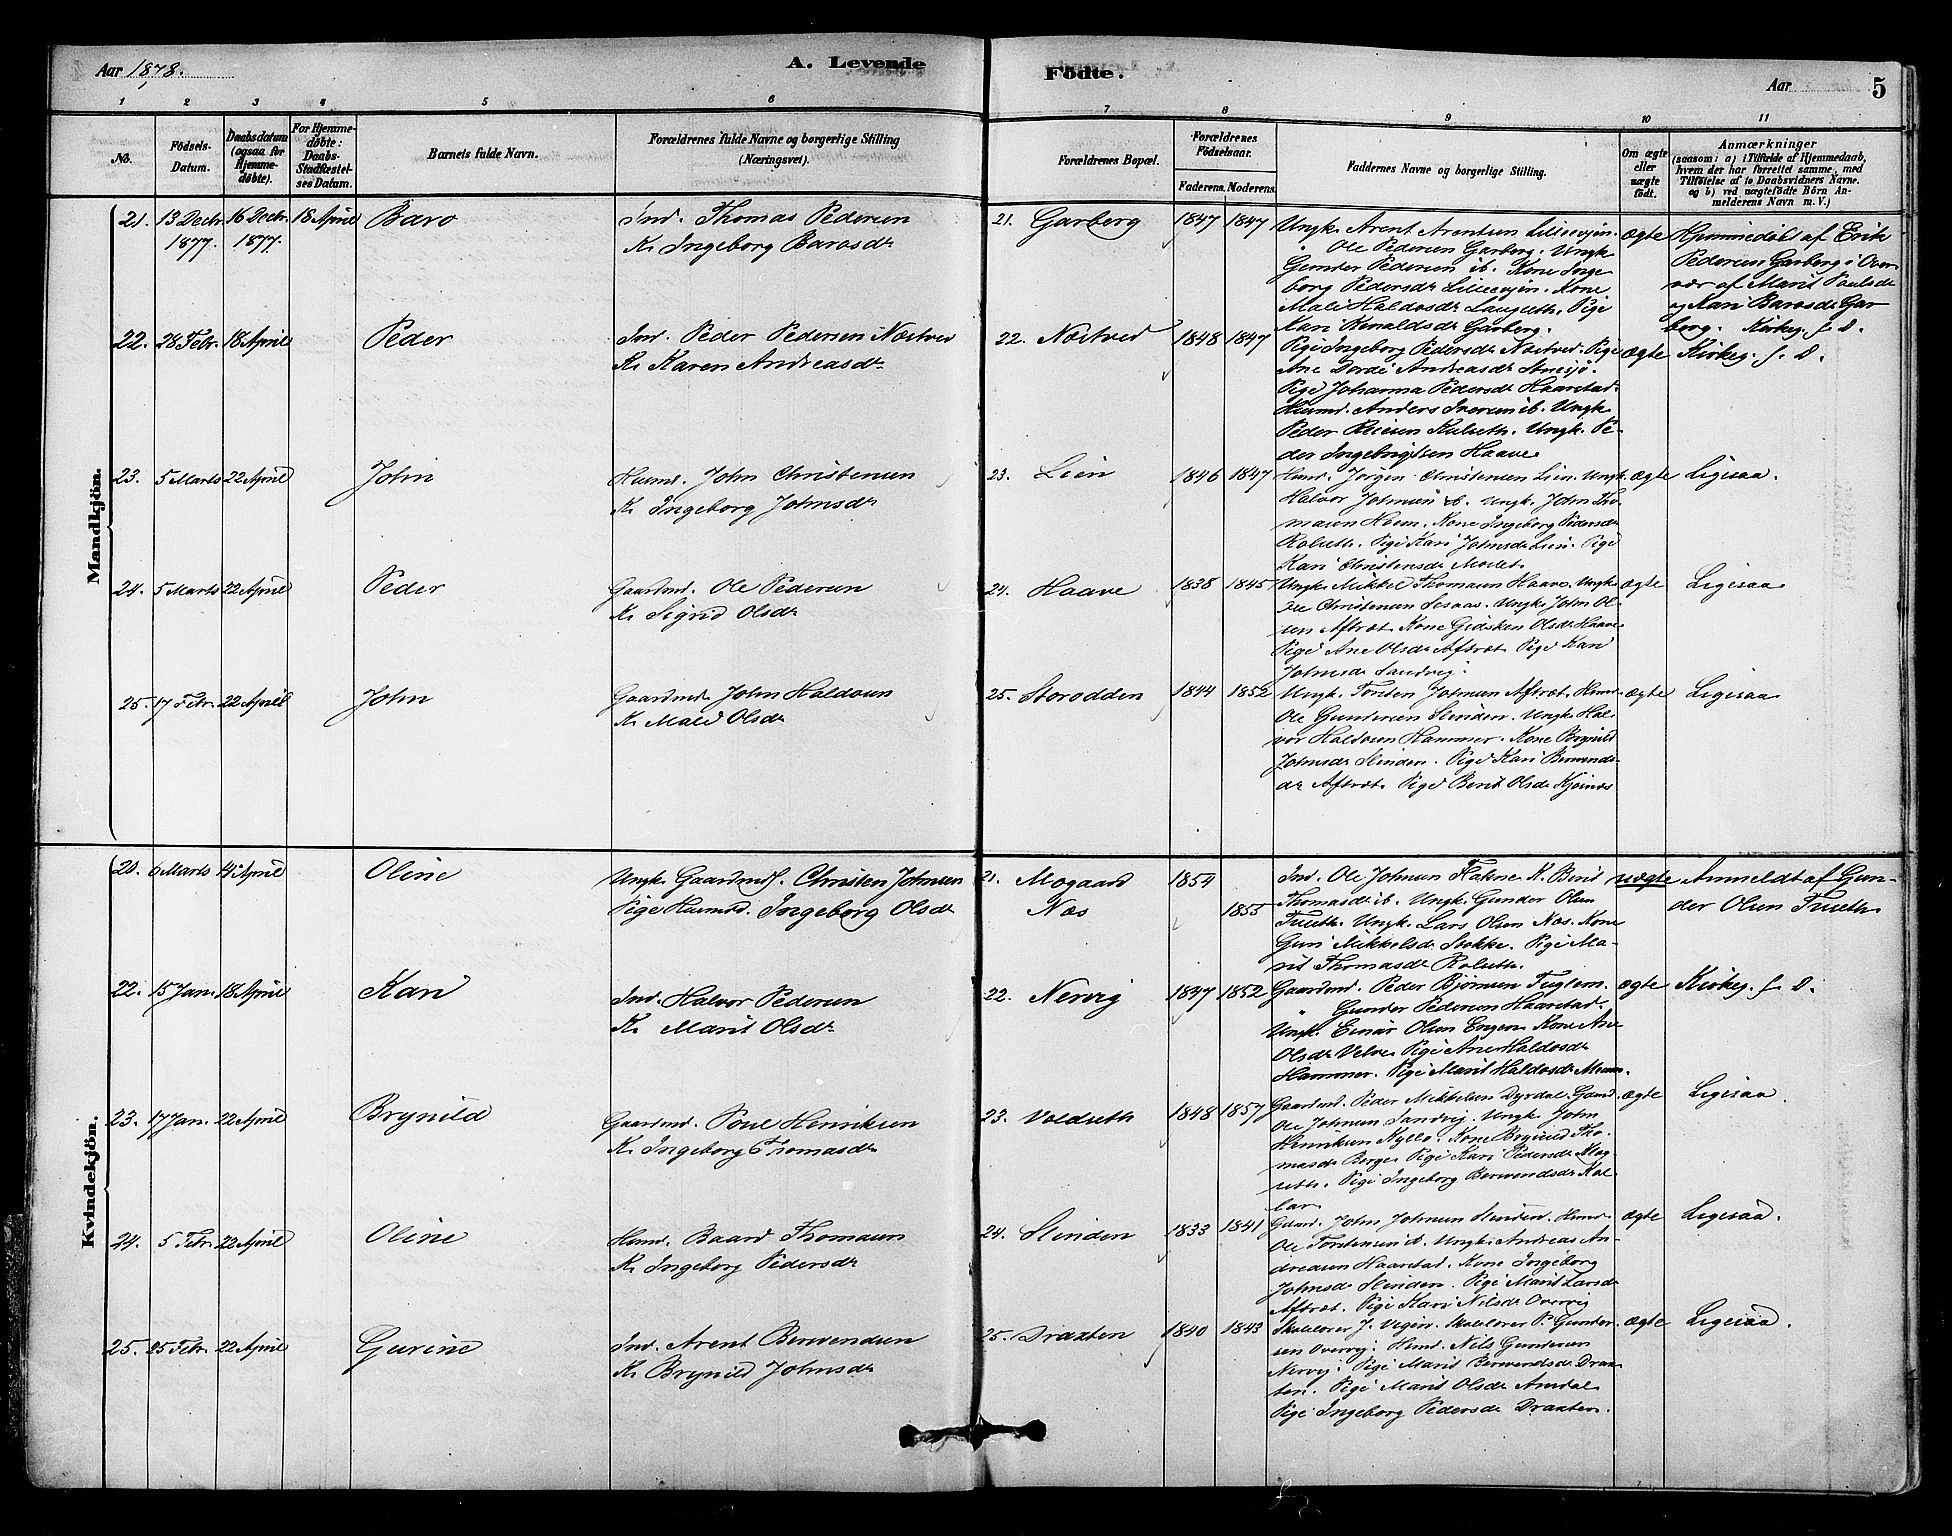 Aar 1878.
A. Levende
Födte.
Aar
5
1 2 3 4 5 6 7 8 9 10 11
No.
Födsels-
Datum.
Daabsdatum
(ogsaa for
Hjemme-
döbte).
For Hjemme-
döbte:
Daabs-
Stadfæstel-
ses Datum.
Barnets fulde Navn.
Forældrenes fulde Navne og borgerlige Stilling
(Næringsvei).
Forældrenes Bopæl.
Forældrenes
Födselsaar.
Faderens. Moderens.
Faddernes Navne og borgerlige Stilling.
Om ægte
eller
uægte
födt.
Anmærkninger
(saasom: a) i Tilfælde af Hjemmedaab,
hvem der har forrettet samme, med
Tilföielse af to Daabsvidners Navne.
og b) ved uægtefödte Börn An-
melderens Navn m. V.)
Mandkjön.
21. 13 Decbr. 16 Decbr. 18 April Baro
1877. 1877.
Ind. Thomas Pedersen
K. Ingeborg Barosdr
21. Garberg 1847 1847
Ungk. Arent Arentsen Lillevejen.
" Ole Pedersen Garberg. Ungk.
Gunder Pedersen ib. Kone Inge-
borg Pedersdr Lillevejen. Kone
Mali Haldosdr Langseth. Pige
Kari Arnoldsdr Garberg.
ægte
Hjemmedöbt af Erik
Pedersen Garberg i Over-
vær af Marit Paulsdr
og Kari Barosdr Gar-
berg. Kirkeg. f. D.
22. 28 Febr. 18 April Peder
Ind. Peder Pedersen Næstved
K. Karen Andreasdr
22. Næstved 1848 1847
Pige Ingeborg Pedersdr Næstved. Pige
Ane Dordi Andreasdr
Pige Johanna Pedersdr Haarstad.
Husmd. Anders Iversen ib. Ungk.
Peder Kulseth. Ungk. Pe-
der Ingebrigtsen Haave
ægte Kirkeg. f. D.
23. 5 Marts 22 April John
Husmd. John Christensen
K. Ingeborg Johnsdr
23. Lien 1846 1847
Husmd. Jørgen Christensen Lien. Ungk.
Halvor Johnsen ib. Ungk. John Tho-
masen Moen. Kone Ingeborg Pedersdr
Rolseth. Pige Kari Johnsdr Lien. Pige
Kari Christensdr Moslet.
ægte Ligesaa.
24. 5 Marts 22 April Peder
Gaardmd. Ole Pedersen
K. Sigrid Olsdr
24. Haave 1838 1845
Ungk. Mikkel Thomasen Haave. Ungk.
Ole Christensen Sesaas. Ungk. John Ol-
sen Aftret. Kone Gidsken Olsdr Haave
Pige Ane Olsdr Aftret. Pige Kari
Johnsdr Sandvig.
ægte Ligesaa
25. 17 Febr. 22 April John
Gaardmd. John Haldosen
K. Mali Olsdr
25. Storodden 1844 1852
Ungk. Torsten Johnsen Aftret. Husmd.
Ole Gundersen Slinden. Ungk. Hal-
vor Haldosen Hammer. Kone Brynild
Johnsdr Slinden. Pige Kari Bernends-
dr Aftret. Pige Berit Olsdr Kjösnes
ægte Ligesaa
Kvindekjön.
20. 6 Marts 14 April Oline
Ungk. Gaardmds. Christen Johnsen
Pige Husmd. Ingeborg Olsdr
21. Mogaard 1854
Næs 1855
Ind. Ole Johnsen Flaknæ K. Berit
Thomasdr ib. Ungk. Gunder Olsen
Tuseth. Ungk. Lars Olsen Næs. Kone
Guri Mikkelsdr Stokke. Pige Ma-
rit Thomasdr Rolseth.
uægte Anmeldt af Gun-
der Olsen Tuseth
22. 15 Jan. 18 April Kari
Ind. Halvor Pedersen
K. Marit Olsdr
22. Nervig 1847 1852
Gaardmd. Peder Bjørnsen Fuglem.
" Gunder Pedersen Haarstad.
Ungk. Einar Olsen Engen. Kone Ane
Olsdr Velve. Pige Ane Haldosdr
Hammer. Pige Marit Haldosdr
ægte Kirkeg. f. D.
23. 17 Jan. 22 April Brynild
Gaardmd. Poul Henriksen
K. Ingeborg Thomasdr
23. Voldseth 1848 1857
Gaardmd. Peder Mikkelsen Dyrdal. Gmd.
Ole Johnsen Sandvig. Ungk. John
Henriksen Nyllo. Kone Brynild Tho-
masdr Borge. Pige Kari Pedersdr Mog-
seth. Pige Ingeborg Bernendsdr Kal-
lar.
ægte Ligesaa.
24. 5 Febr. 22 April Oline
Husmd. Baard Thomasen
K. Ingeborg Pedersdr
24. Slinden 1833 1841
Gmd. John Johnsen Slinden. Husmd.
Ole Torstensen ib. Ungk. Andreas An-
dreasen Haarstad. Kone Ingeborg
Johnsdr Slinden. Pige Marit Larsdr
Aftret. Pige Kari Nilsdr Overvig
ægte Ligesaa.
25. 25 Febr. 22 April Gurine
Ind. Arent Bernendsen
K. Brynild Johnsdr
25. Draxten 1840 1843
Skolelærer J. Vegin. Skolelærer P. Gunder-
sen Overvig. Husmd. Nils Gundersen
Nervig. Pige Marit Bernendsdr Drax-
ten. Pige Marit Olsdr Amdal
Pige Ingeborg Pedersdr Draxten.
ægte Ligesaa.